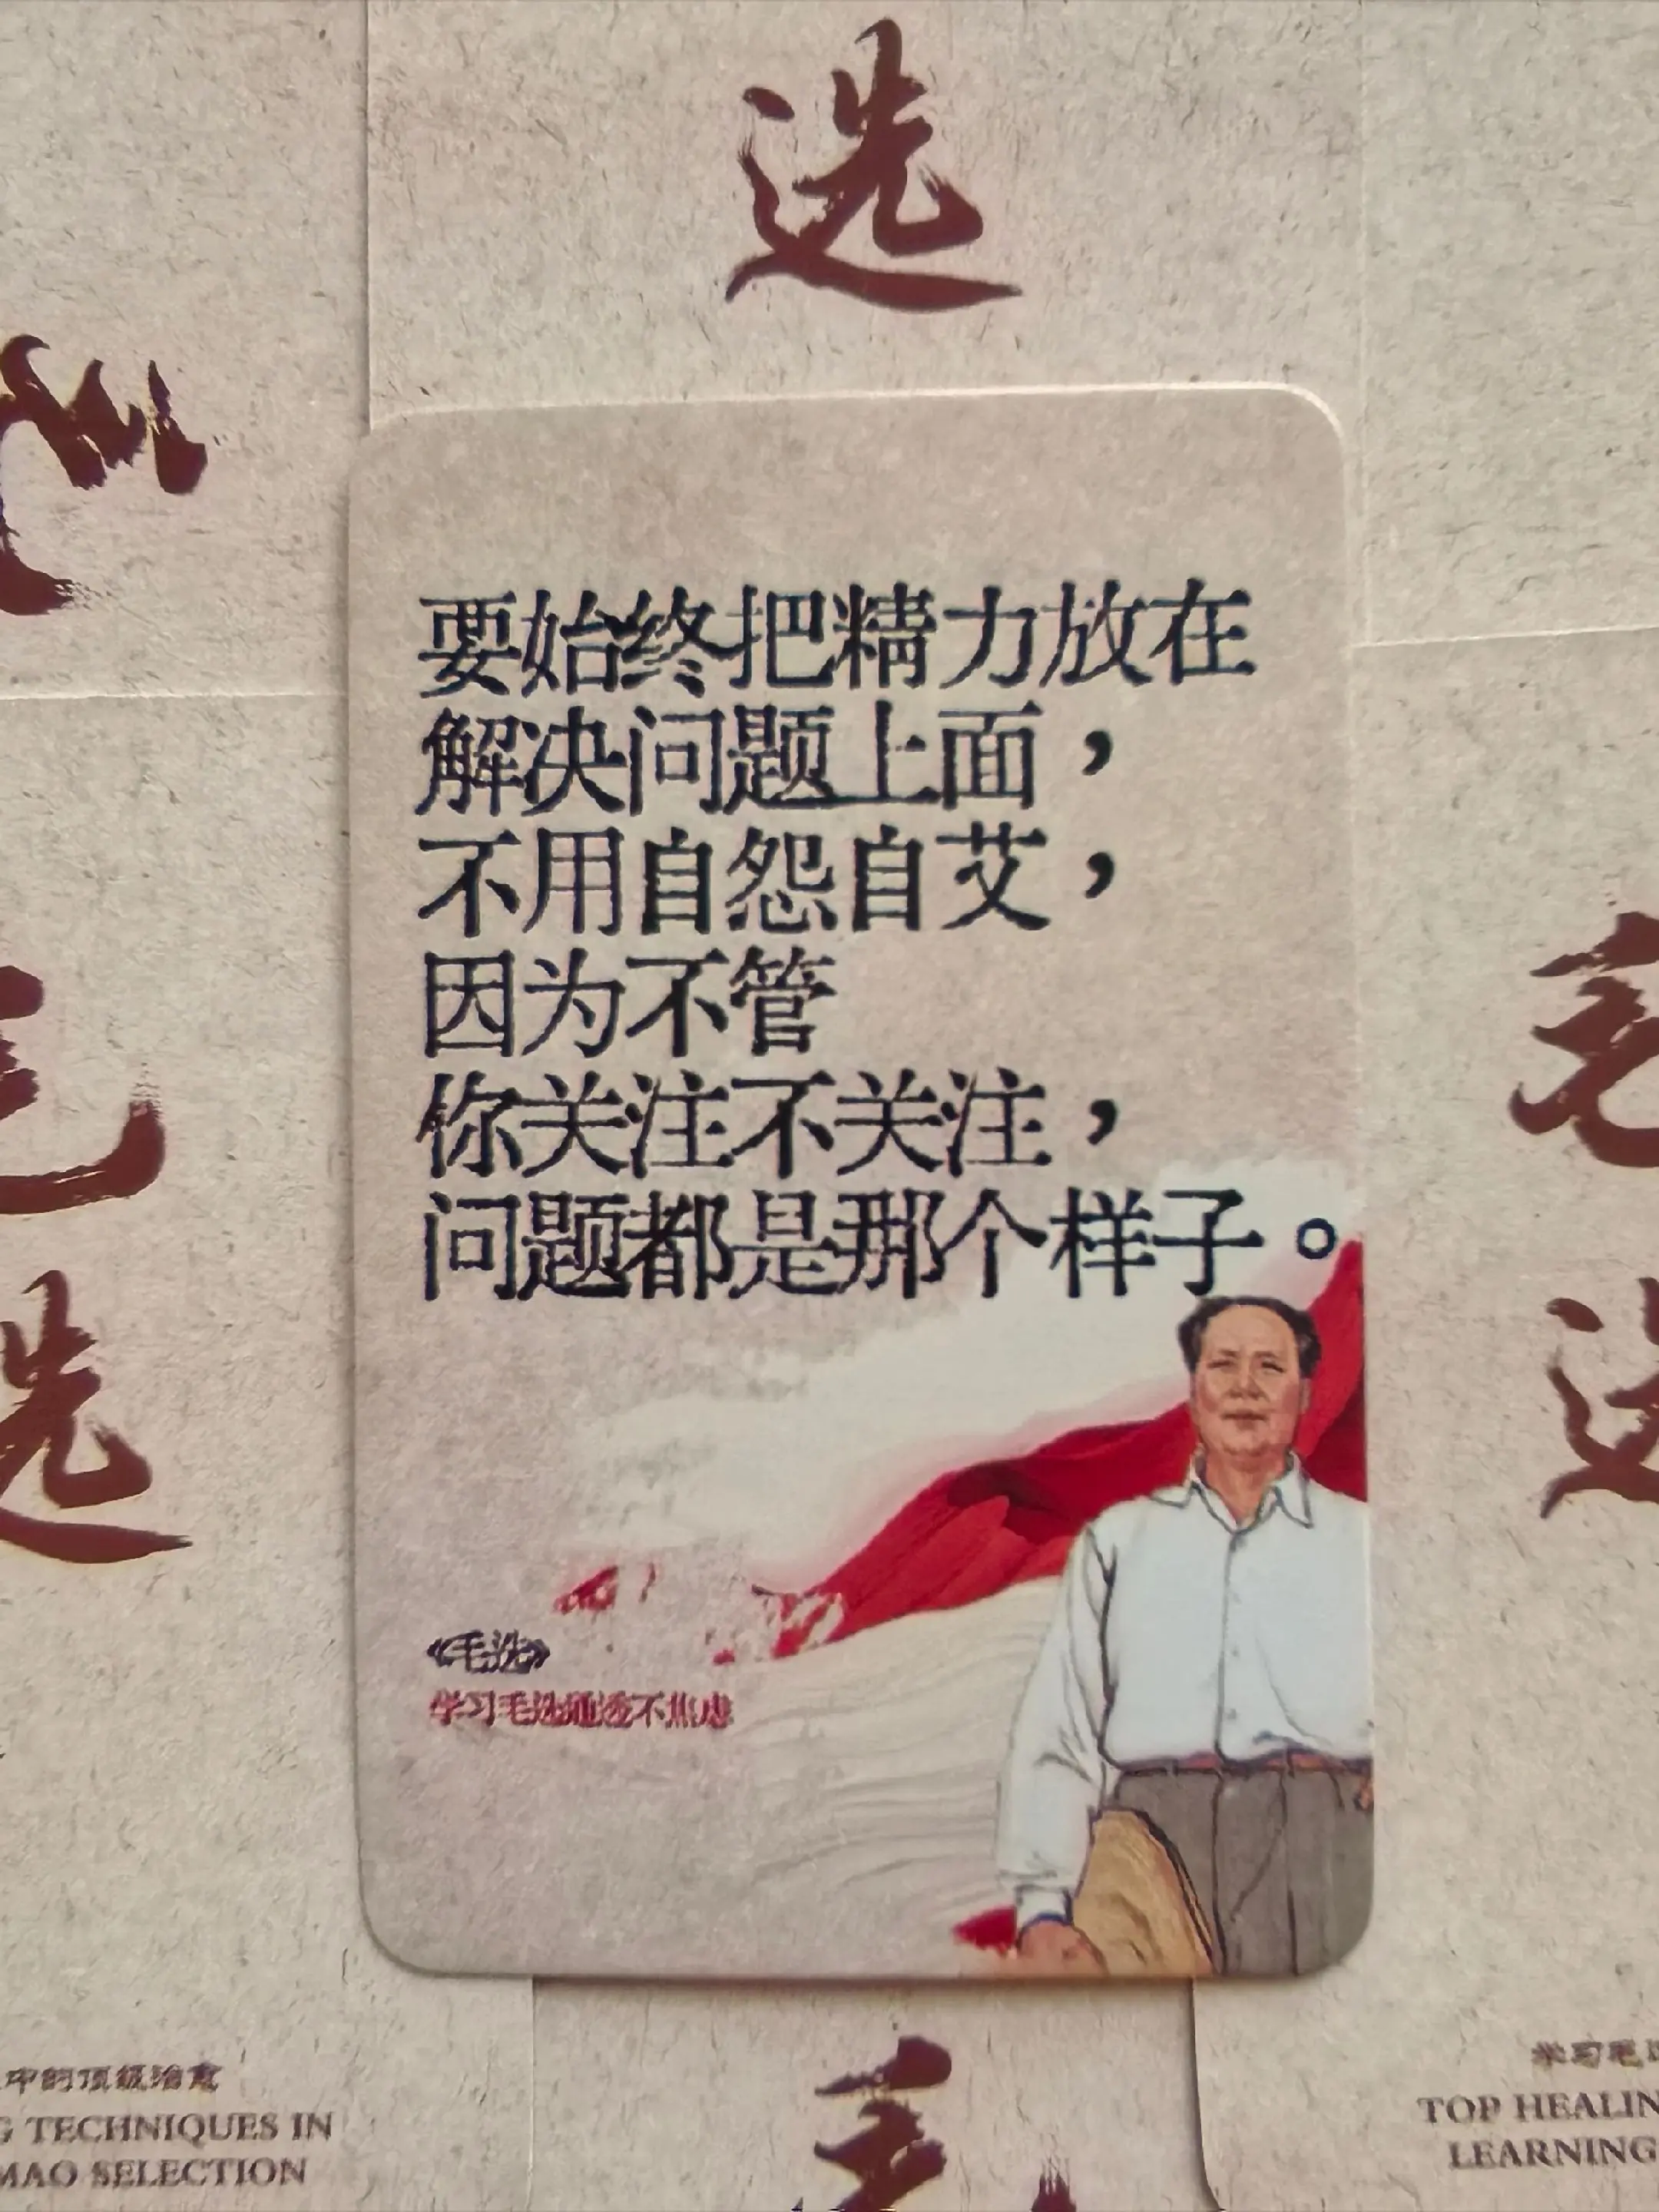 选
要始终把精力放在
解决问题上面，
不用自怨自艾，
因为不管
你关注不关注，
问题都是那个样子。
《毛选》
学习毛选通透不焦虑
毛
选
毛
选
中的顶级治愈
TECHNIQUES IN
MAO SELECTION
毛
学习毛
TOP HEALIN
LEARNING